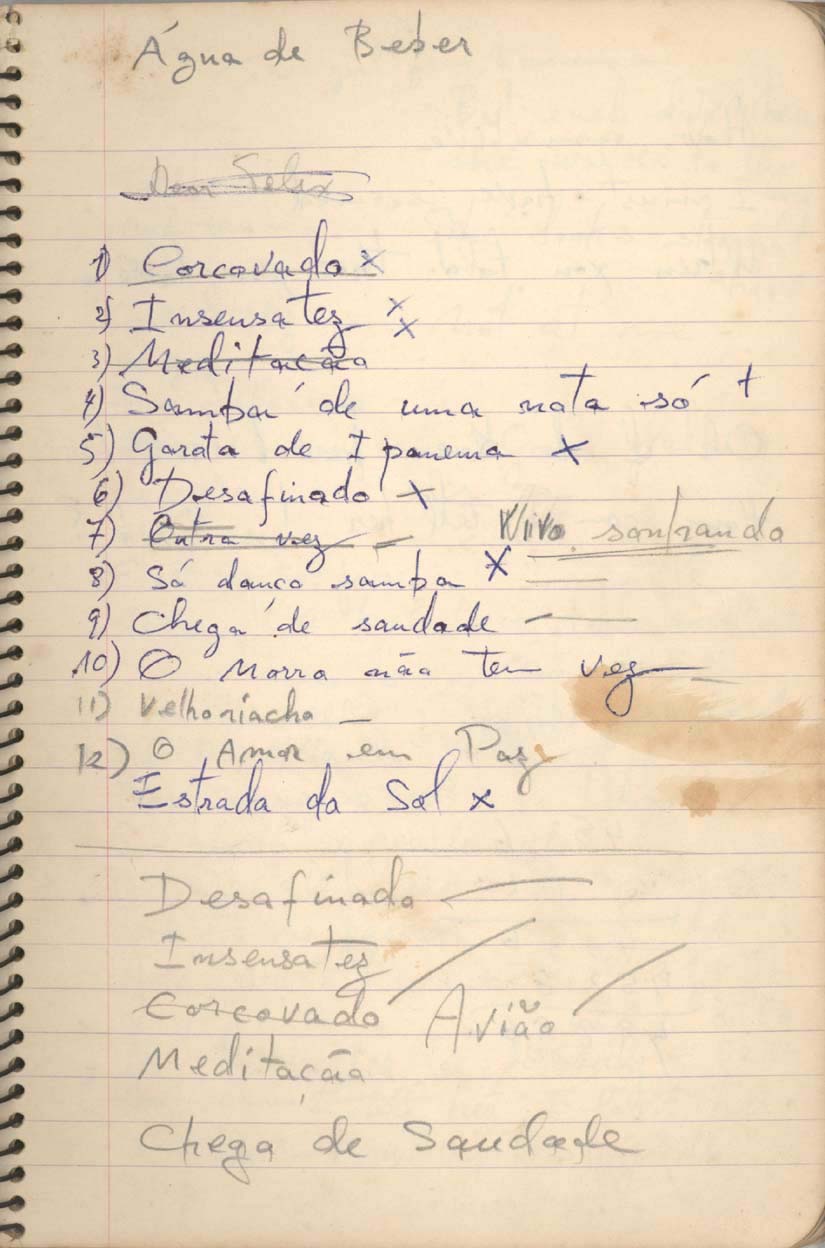 Água de Beber
Dear Felix
1) Corcovado x
2) Insensatez x x
3) Meditação
4) Samba de uma nota só +
5) Garota de Ipanema x
6) Desafinado x
7) Outra vez – Vivo sonhando
8) Só danço samba x
9) Chega de saudade –
10) O Morro não tem vez –
11) Velho riacho –
12) O Amor em Paz
Estrada do Sol x
Desafinado
Insensatez
Corcovado Avião
Meditação
Chega de Saudade